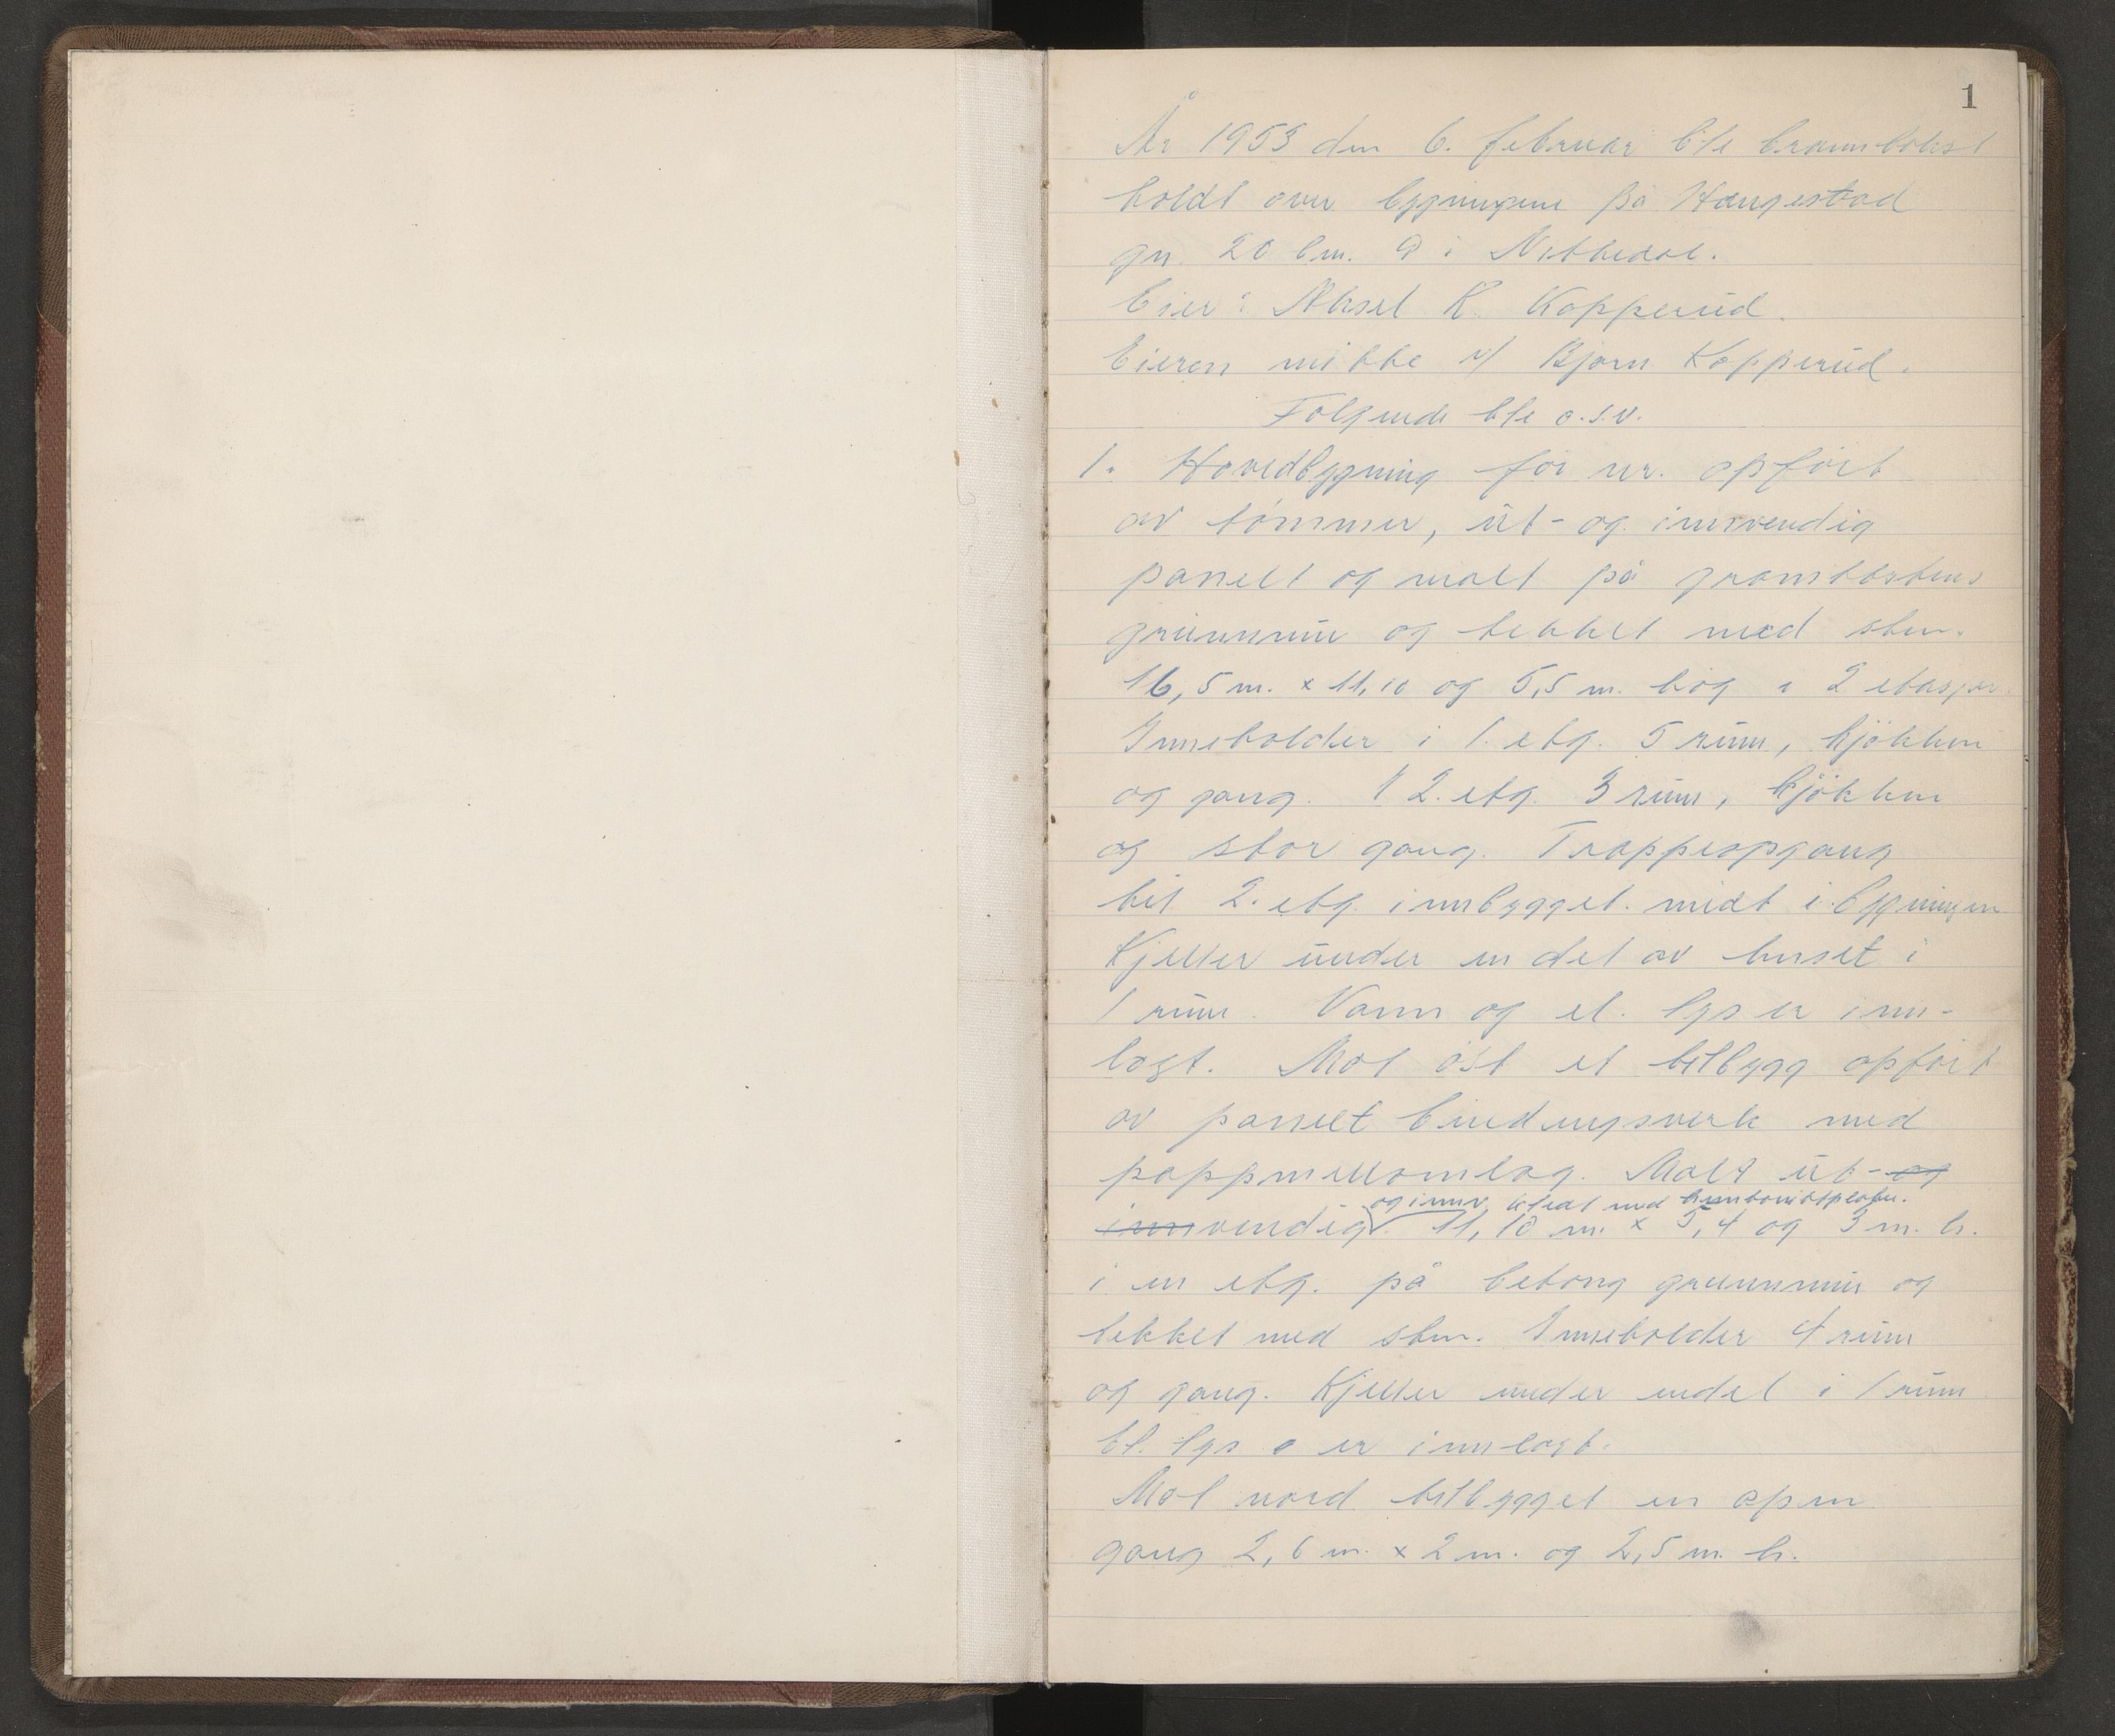 1
År 1953 den 6. februar ble branntakst
holdt over bygningene på Haugestad
gn. 20 bn. 9 i Nittedal.
Eier: Aksel K. Kopperud.
Eieren møtte v/ Bjørn Kopperud.
Følgende ble o.s.v.
1. Hovedbygning før nr. opført
av tømmer, ut- og innvendig
panelt og malt på gråmtostens
grunnmur og tekket med sten.
16,5 m. x 11,10 og 5,5 m. høg i 2 etasjer.
Inneholder i 1. etg. 5 rum, kjøkken
og gang. I 2. etg. 3 rum, kjøkken
og stor gang. Trappeopgang
til 2. etg. innbygget midt i bygningen
Kjeller under en del av huset i
1 rum. Vann og el. lys er inn-
lagt. Mot øst et tilbygg opført
av panelt bindingsverk med
pappmellomlag. Malt ut- og
og innv. kledt med
innvendig. 11,10 m. x 5,4 og 3 m. h.
i en etg. på betong grunnmur og
tekket med sten. Inneholder 4 rum
og gang. Kjeller under endel i 1 rum
El. lys er innlagt.
Mot nord tilbygget en åpen
gang 2,6 m. x 2 m. og 2,5 m. h.